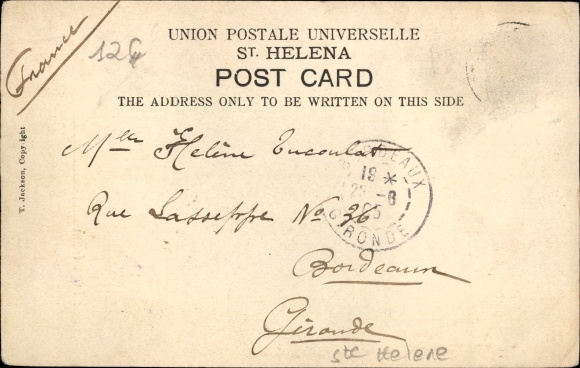 France
12
UNION POSTALE UNIVERSELLE
ST. HELENA
POST CARD
THE ADDRESS ONLY TO BE WRITTEN ON THIS SIDE
T. Jackson, Copyright
Mlle Hélène
Rue No 36
Bordeaux
Gironde
BORDEAUX
19 *
GIRONDE
Ste Helene